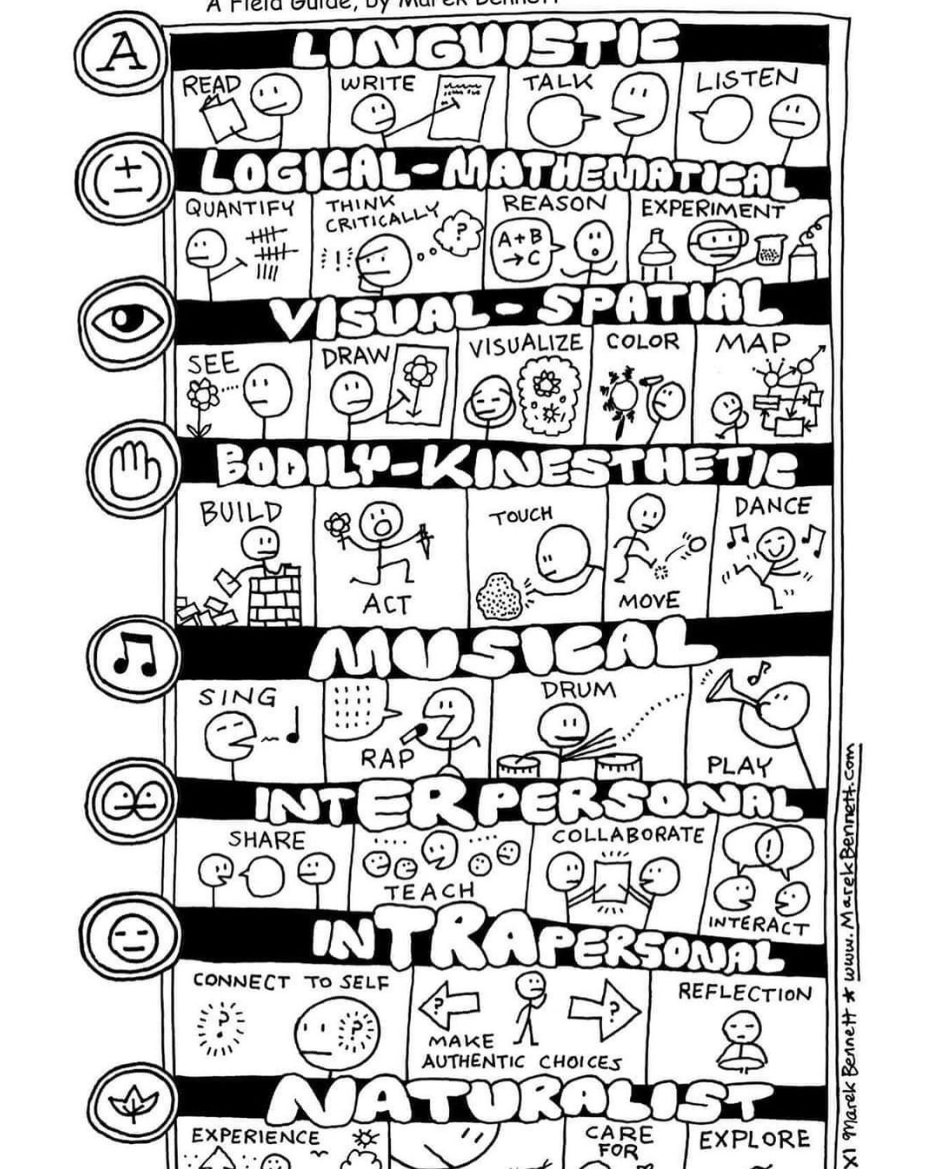 A Field Guide, by Marek Bennett
A
LINGUISTIC
READ
WRITE
TALK
LISTEN
LOGICAL-MATHEMATICAL
QUANTIFY
THINK
CRITICALLY
REASON
EXPERIMENT
!!
?
A+B
→C
VISUAL-SPATIAL
SEE
DRAW
VISUALIZE
COLOR
MAP
BODILY-KINESTHETIC
BUILD
ACT
TOUCH
MOVE
DANCE
MUSICAL
SING
RAP
DRUM
PLAY
INTERPERSONAL
SHARE
TEACH
COLLABORATE
!
INTERACT
INTRAPERSONAL
CONNECT TO SELF
?
?
?
?
MAKE
AUTHENTIC CHOICES
REFLECTION
NATURALIST
EXPERIENCE
CARE
FOR
EXPLORE
Marek Bennett * www.MarekBennett.com